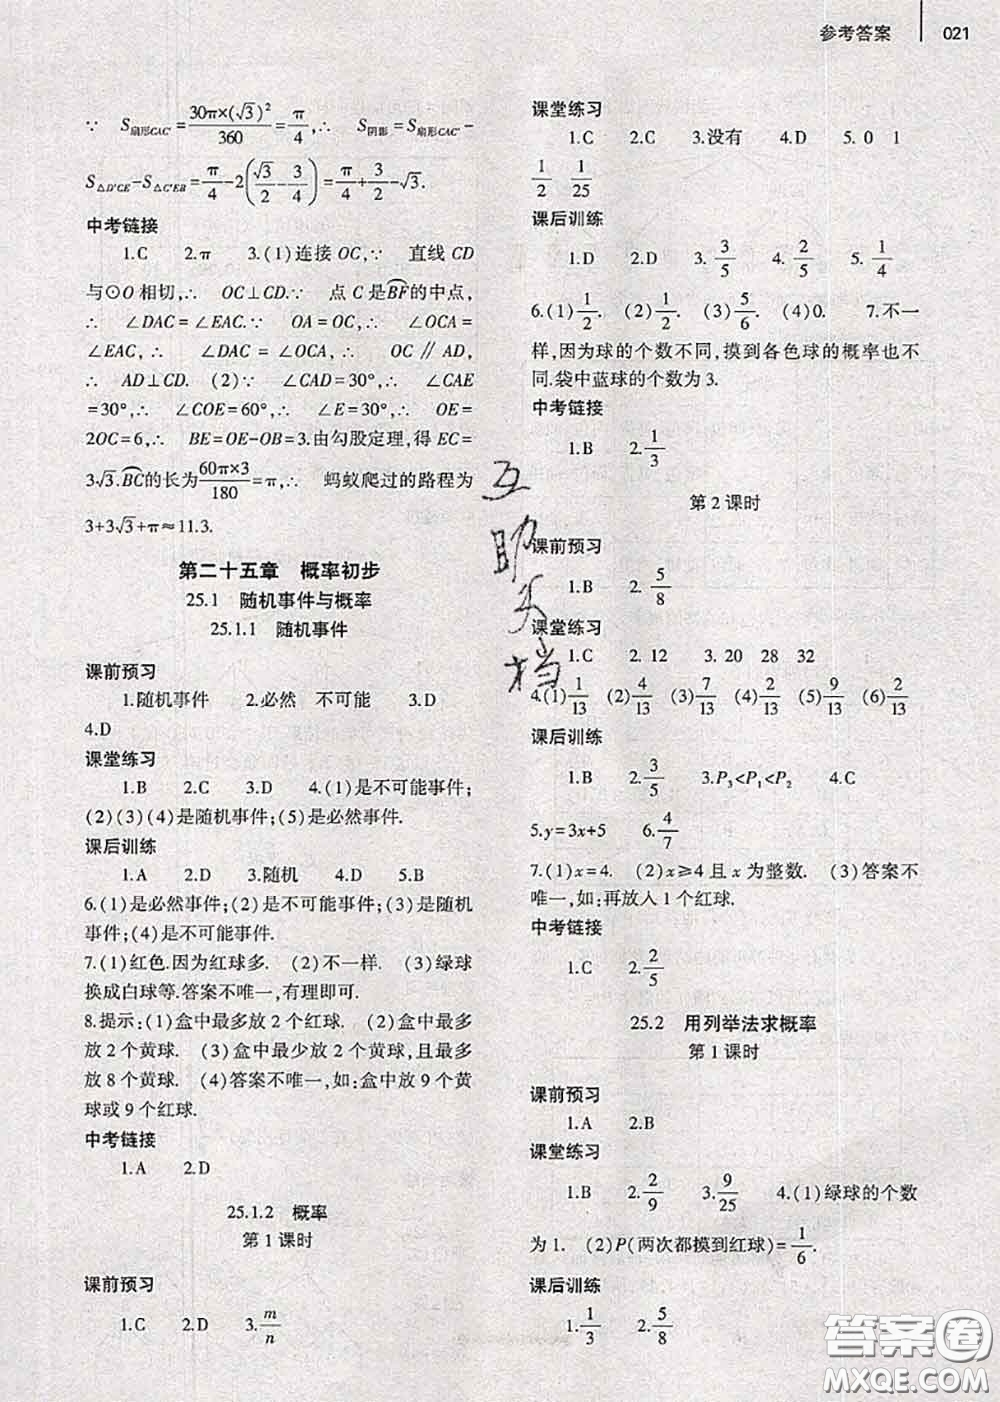 参考答案 021
∵ S扇形CAC' = 30π×(√3)²/360 = π/4, ∴ S阴影 = S扇形CAC' −
S△D'CE − S△C'EB = π/4 − 2(√3/2 − 3/4) = π/4 + 3/2 − √3.
中考链接
1.C 2.π 3.(1)连接 OC,∵ 直线 CD
与⊙O 相切,∴ OC⊥CD.∵ 点 C 是BF的中点,
∴ ∠DAC=∠EAC.∵ OA=OC,∴ ∠OCA=
∠EAC,∴ ∠DAC=∠OCA,∴ OC∥AD,
∴ AD⊥CD. (2)∵ ∠CAD=30°,∴ ∠CAE
=30°,∴ ∠COE=60°,∴ ∠E=30°,∴ OE=
2OC=6,∴ BE=OE-OB=3.由勾股定理,得 EC=
3√3.BC的长为60π×3/180=π,∴ 蚂蚁爬过的路程为
3+3√3+π≈11.3.
第二十五章 概率初步
25.1 随机事件与概率
25.1.1 随机事件
课前预习
1.随机事件 2.必然 不可能 3.D
4.D
课堂练习
1.B 2.C 3.D 4.(1)是不可能事件;
(2)(3)(4)是随机事件;(5)是必然事件.
课后训练
1.A 2.D 3.随机 4.D 5.B
6.(1)是必然事件;(2)是不可能事件;(3)是随机
事件;(4)是不可能事件.
7.(1)红色.因为红球多. (2)不一样. (3)绿球
换成白球等.答案不唯一,有理即可.
8.提示:(1)盒中最多放 2 个红球. (2)盒中最多
放 2 个黄球. (3)盒中最少放 2 个黄球,且最多
放 8 个黄球. (4)答案不唯一,如:盒中放 9 个黄
球或 9 个红球.
中考链接
1.A 2.D
25.1.2 概率
第 1 课时
课前预习
1.C 2.D 3.m/n
课堂练习
1.C 2.C 3.没有 4.D 5.0 1
1/2 1/25
课后训练
1.D 2.D 3.3/5 4.2/5 5.1/4
6.(1)1/2. (2)1/2. (3)5/6. (4)0. 7.不一
样,因为球的个数不同,摸到各色球的概率也不
同.袋中蓝球的个数为 3.
中考链接
1.B 2.1/3
第 2 课时
课前预习
1.B 2.5/8
课堂练习
1.C 2.12 3.20 28 32
4.(1)1/13 (2)4/13 (3)7/13 (4)2/13 (5)9/13 (6)2/13
课后训练
1.B 2.3/5 3.P₃<P₁<P₂ 4.C
5.y=3x+5 6.4/7
7.(1)x=4. (2)x≥4 且 x 为整数. (3)答案不
唯一,如:再放入 1 个红球.
中考链接
1.C 2.2/5
25.2 用列举法求概率
第 1 课时
课前预习
1.A 2.B
课堂练习
1.B 2.2/9 3.9/25 4.(1)绿球的个数
为 1. (2)P(两次都摸到红球)=1/6.
课后训练
1.1/3 2.5/8
互
助
文
档
答案圈
MXQE.COM